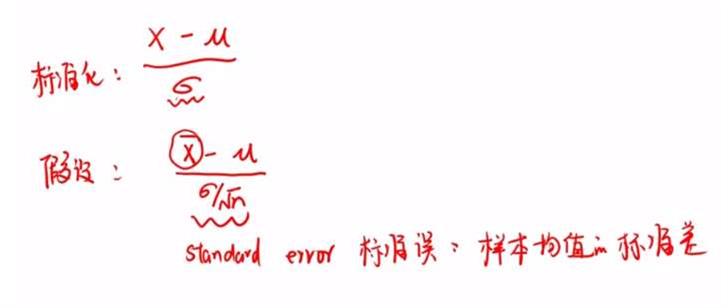 标准化: (X - μ) / σ
假设: (x̄ - μ) / (σ/√n)
standard error 标准误: 样本均值的标准差